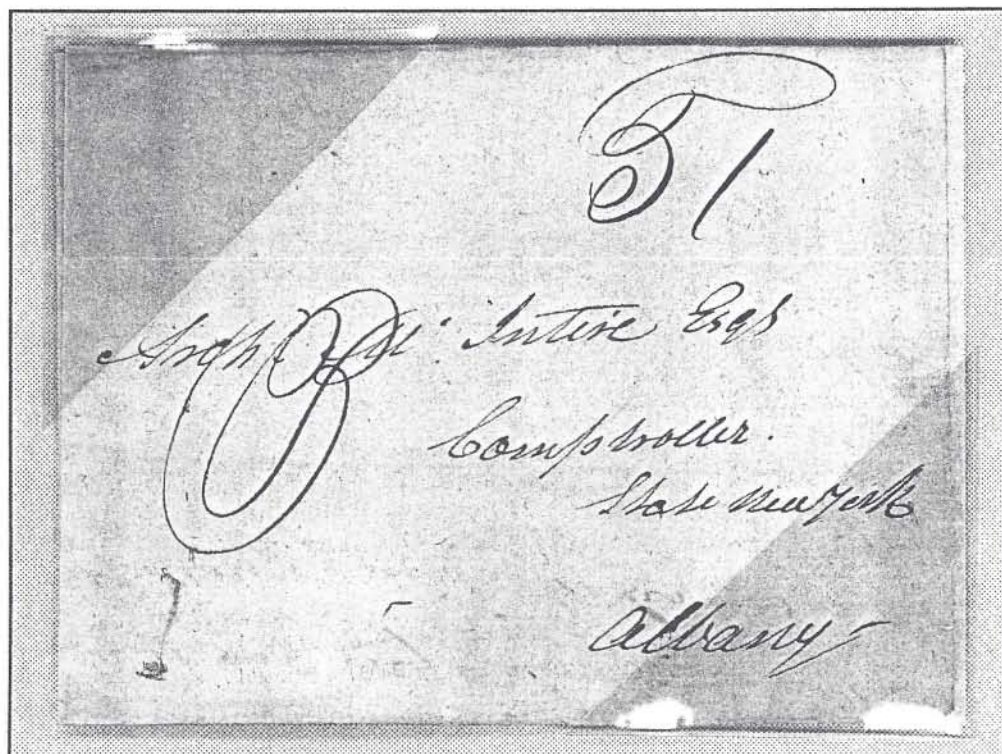 51
Archd. Mc. Intire Esqr
Comptroller.
State New York
Albany